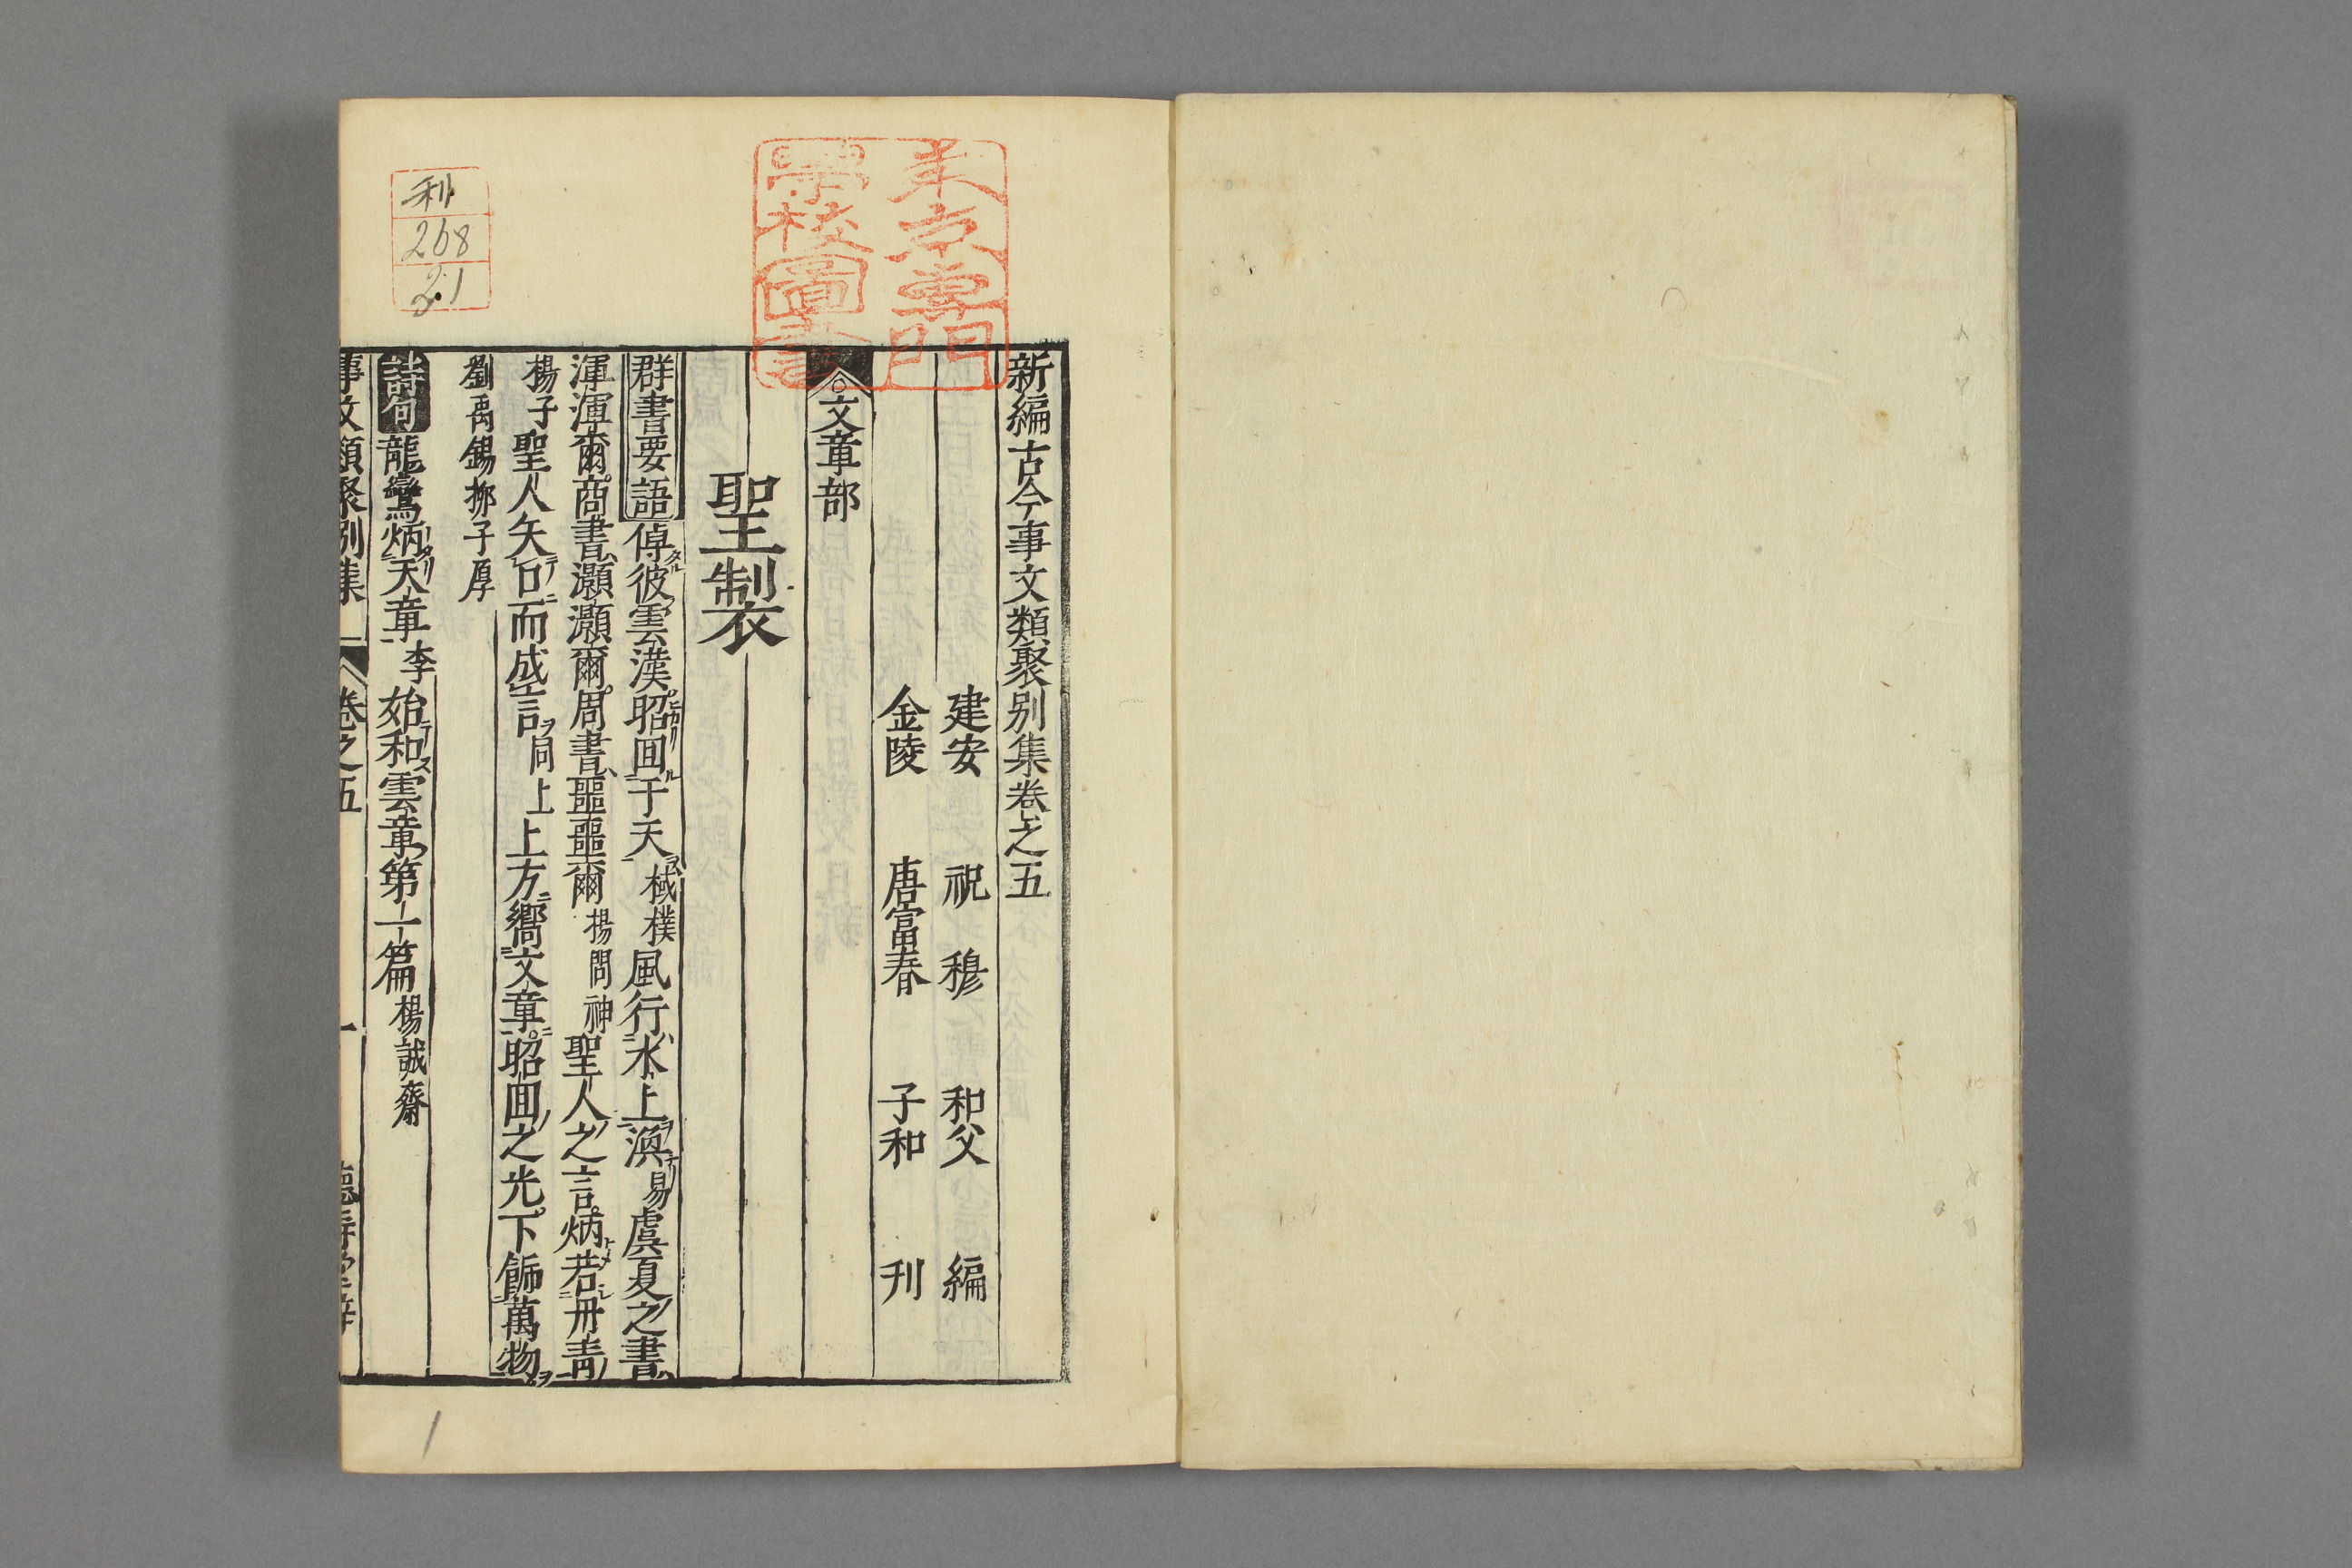 新編古今事文類聚别集卷之五
建安 祝 穆 和父 編
金陵 唐富春 子和 刊
文章部
聖製
群書要語 倬彼雲漢昭回于天 棫樸 風行水上渙 易 虞夏之書
渾渾爾商書灝灝爾周書噩噩爾 揚問神 聖人之言炳若丹青
揚子 聖人矢口而成言 同上 上方嚮文章昭回之光下飾萬物
劉禹錫柳子厚
詩句 龍鸞炳天章 李 始和雲章第一篇 楊誠齋
事文類聚别集 卷之五 一
東京專門
學校圖書
利
268
21
1